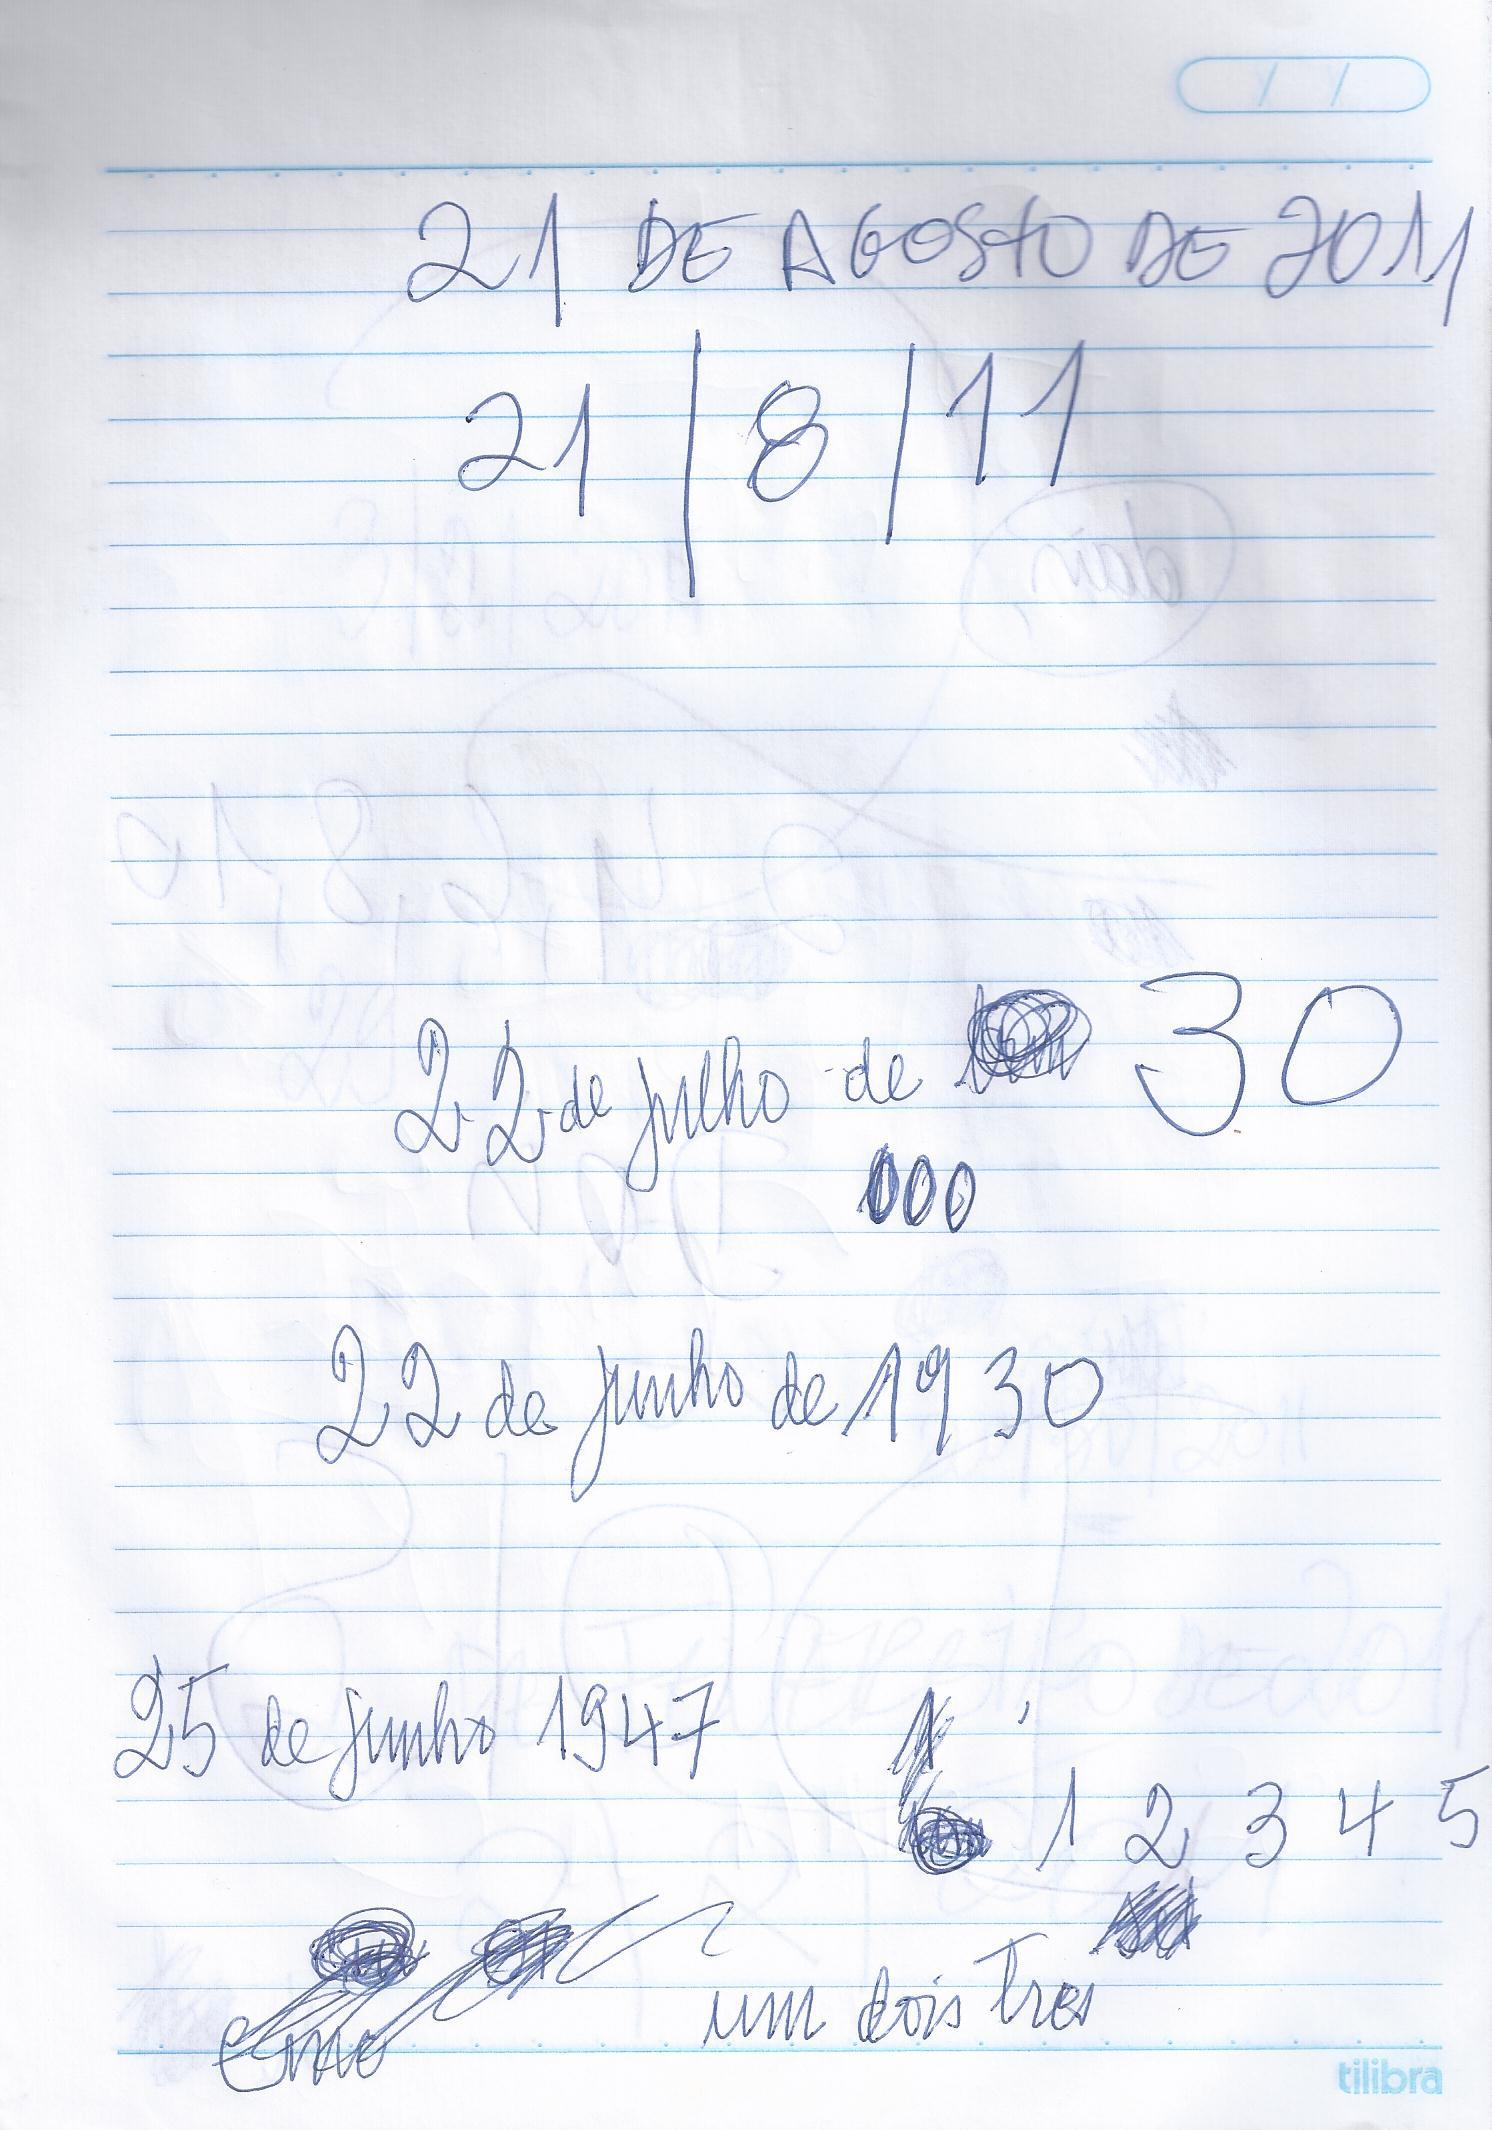 21 DE AGOSTO DE 2011
21/8/11
22 de julho de 30
000
22 de junho de 1930
25 de junho 1947
1 2 3 4 5
um dois tres
tilibra